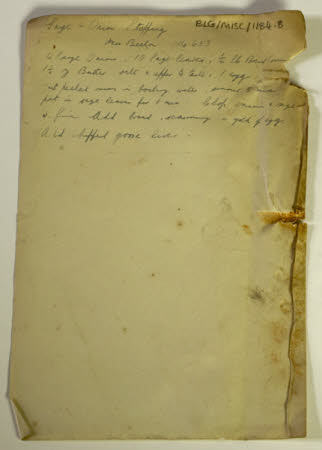 BLG/MISC/1184.8
Sage & Onion Stuffing
Mrs Beeton 633
4 large Onions, 10 Sage leaves, ¼ lb Bread
1½ oz Butter salt & pepper to taste, 1 egg
peeled onions in boiling water, simmer 5 min
put in sage leaves for 1 min Chop onion & sage
fine Add bread, seasoning & yolk of egg
Add chopped goose liver.